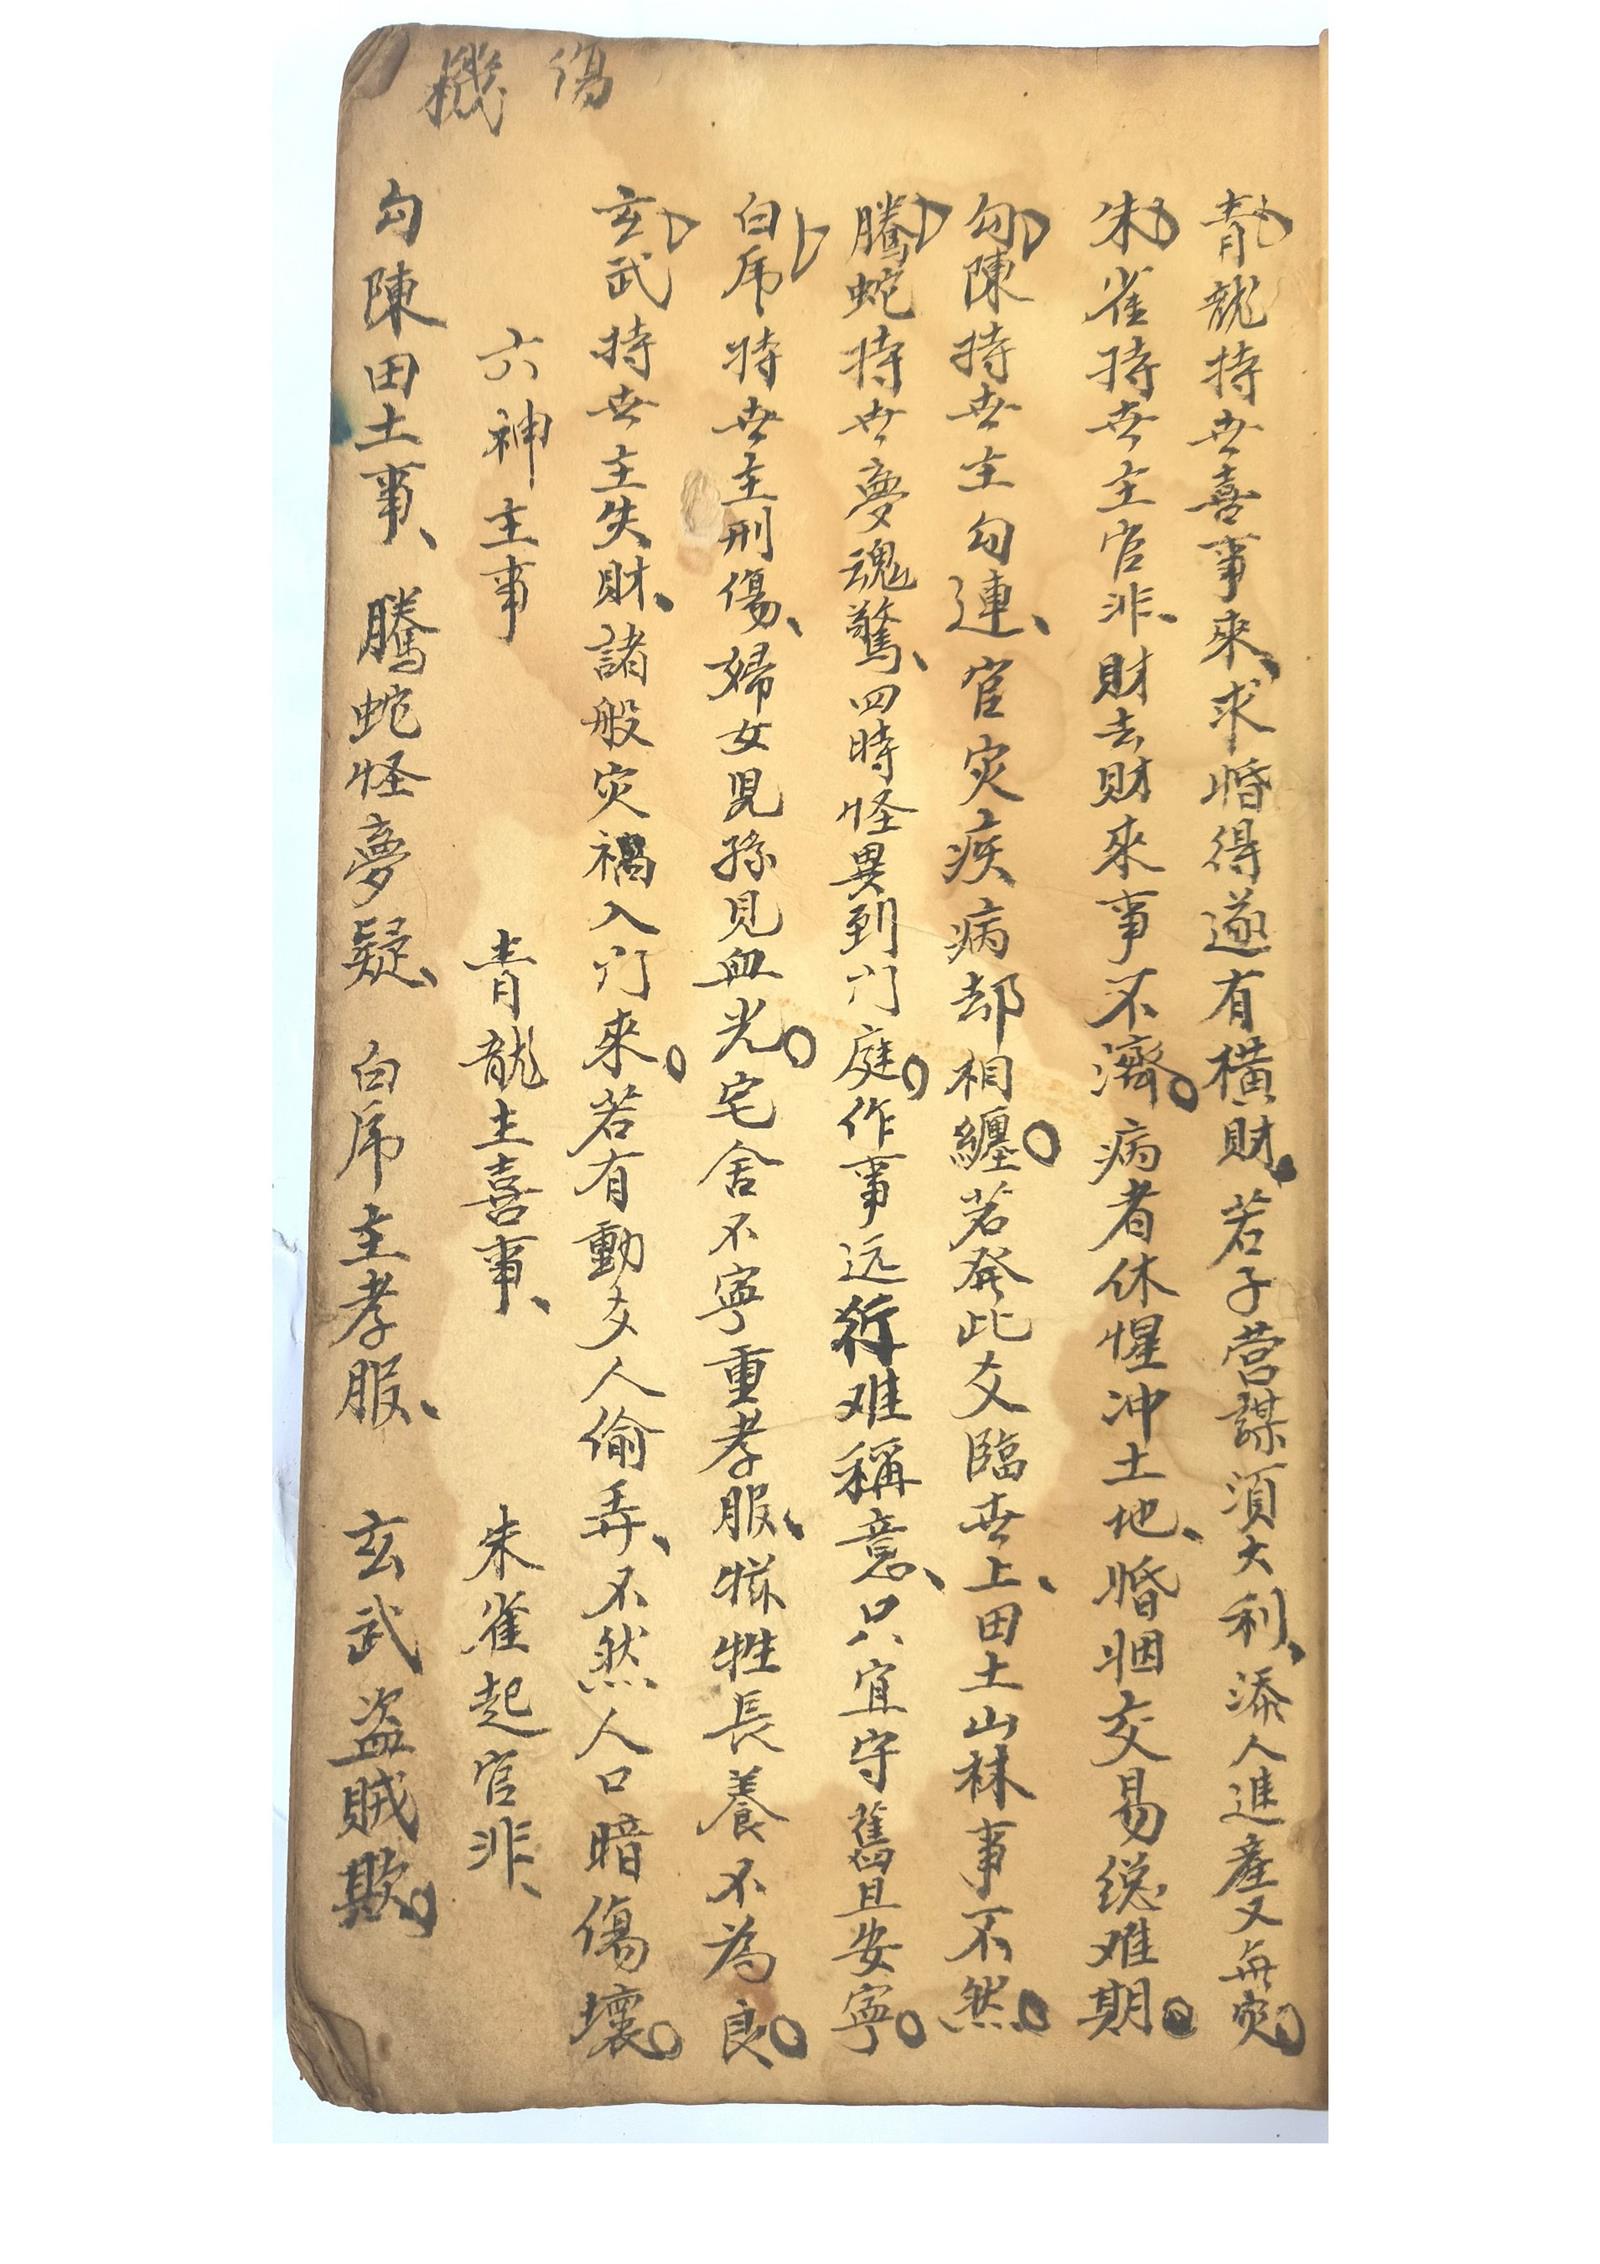 傷
機
青龍持世喜事來、求婚得遂有橫財。若子营謀須大利、添人進產又無灾。
朱雀持世主官非、財去財來事不濟。病者休惺冲土地、婚姻交易總难期。
勾陳持世主勾連、官灾疾病却相纏。若発此爻臨世上、田土山林事不然。
騰蛇持世夢魂驚、四時怪異到门庭。作事远行难稱意、只宜守舊且安寧。
白虎持世主刑傷、婦女児孫見血光。宅舍不寧重孝服、牲長養不為良。
玄武持世主失財、諸般灾禍入门來。若有動爻人偷弄、不然人口暗傷壞。
六神主事 青龍主喜事、 朱雀起官非、
勾陳田土事、 騰蛇怪夢疑、 白虎主孝服、 玄武盗賊欺。